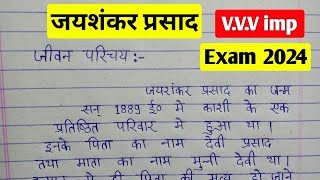 जयशंकर प्रसाद
V.V.V imp
Exam 2024
जीवन परिचय :-
जयशंकर प्रसाद का जन्म
सन् 1889 ई० मे काशी के एक
प्रतिष्ठित परिवार मे हुआ था।
इनके पिता का नाम देवी प्रसाद
तथा माता का नाम मुन्नी देवी था।
ही पिता की मृत्यु हो जाने